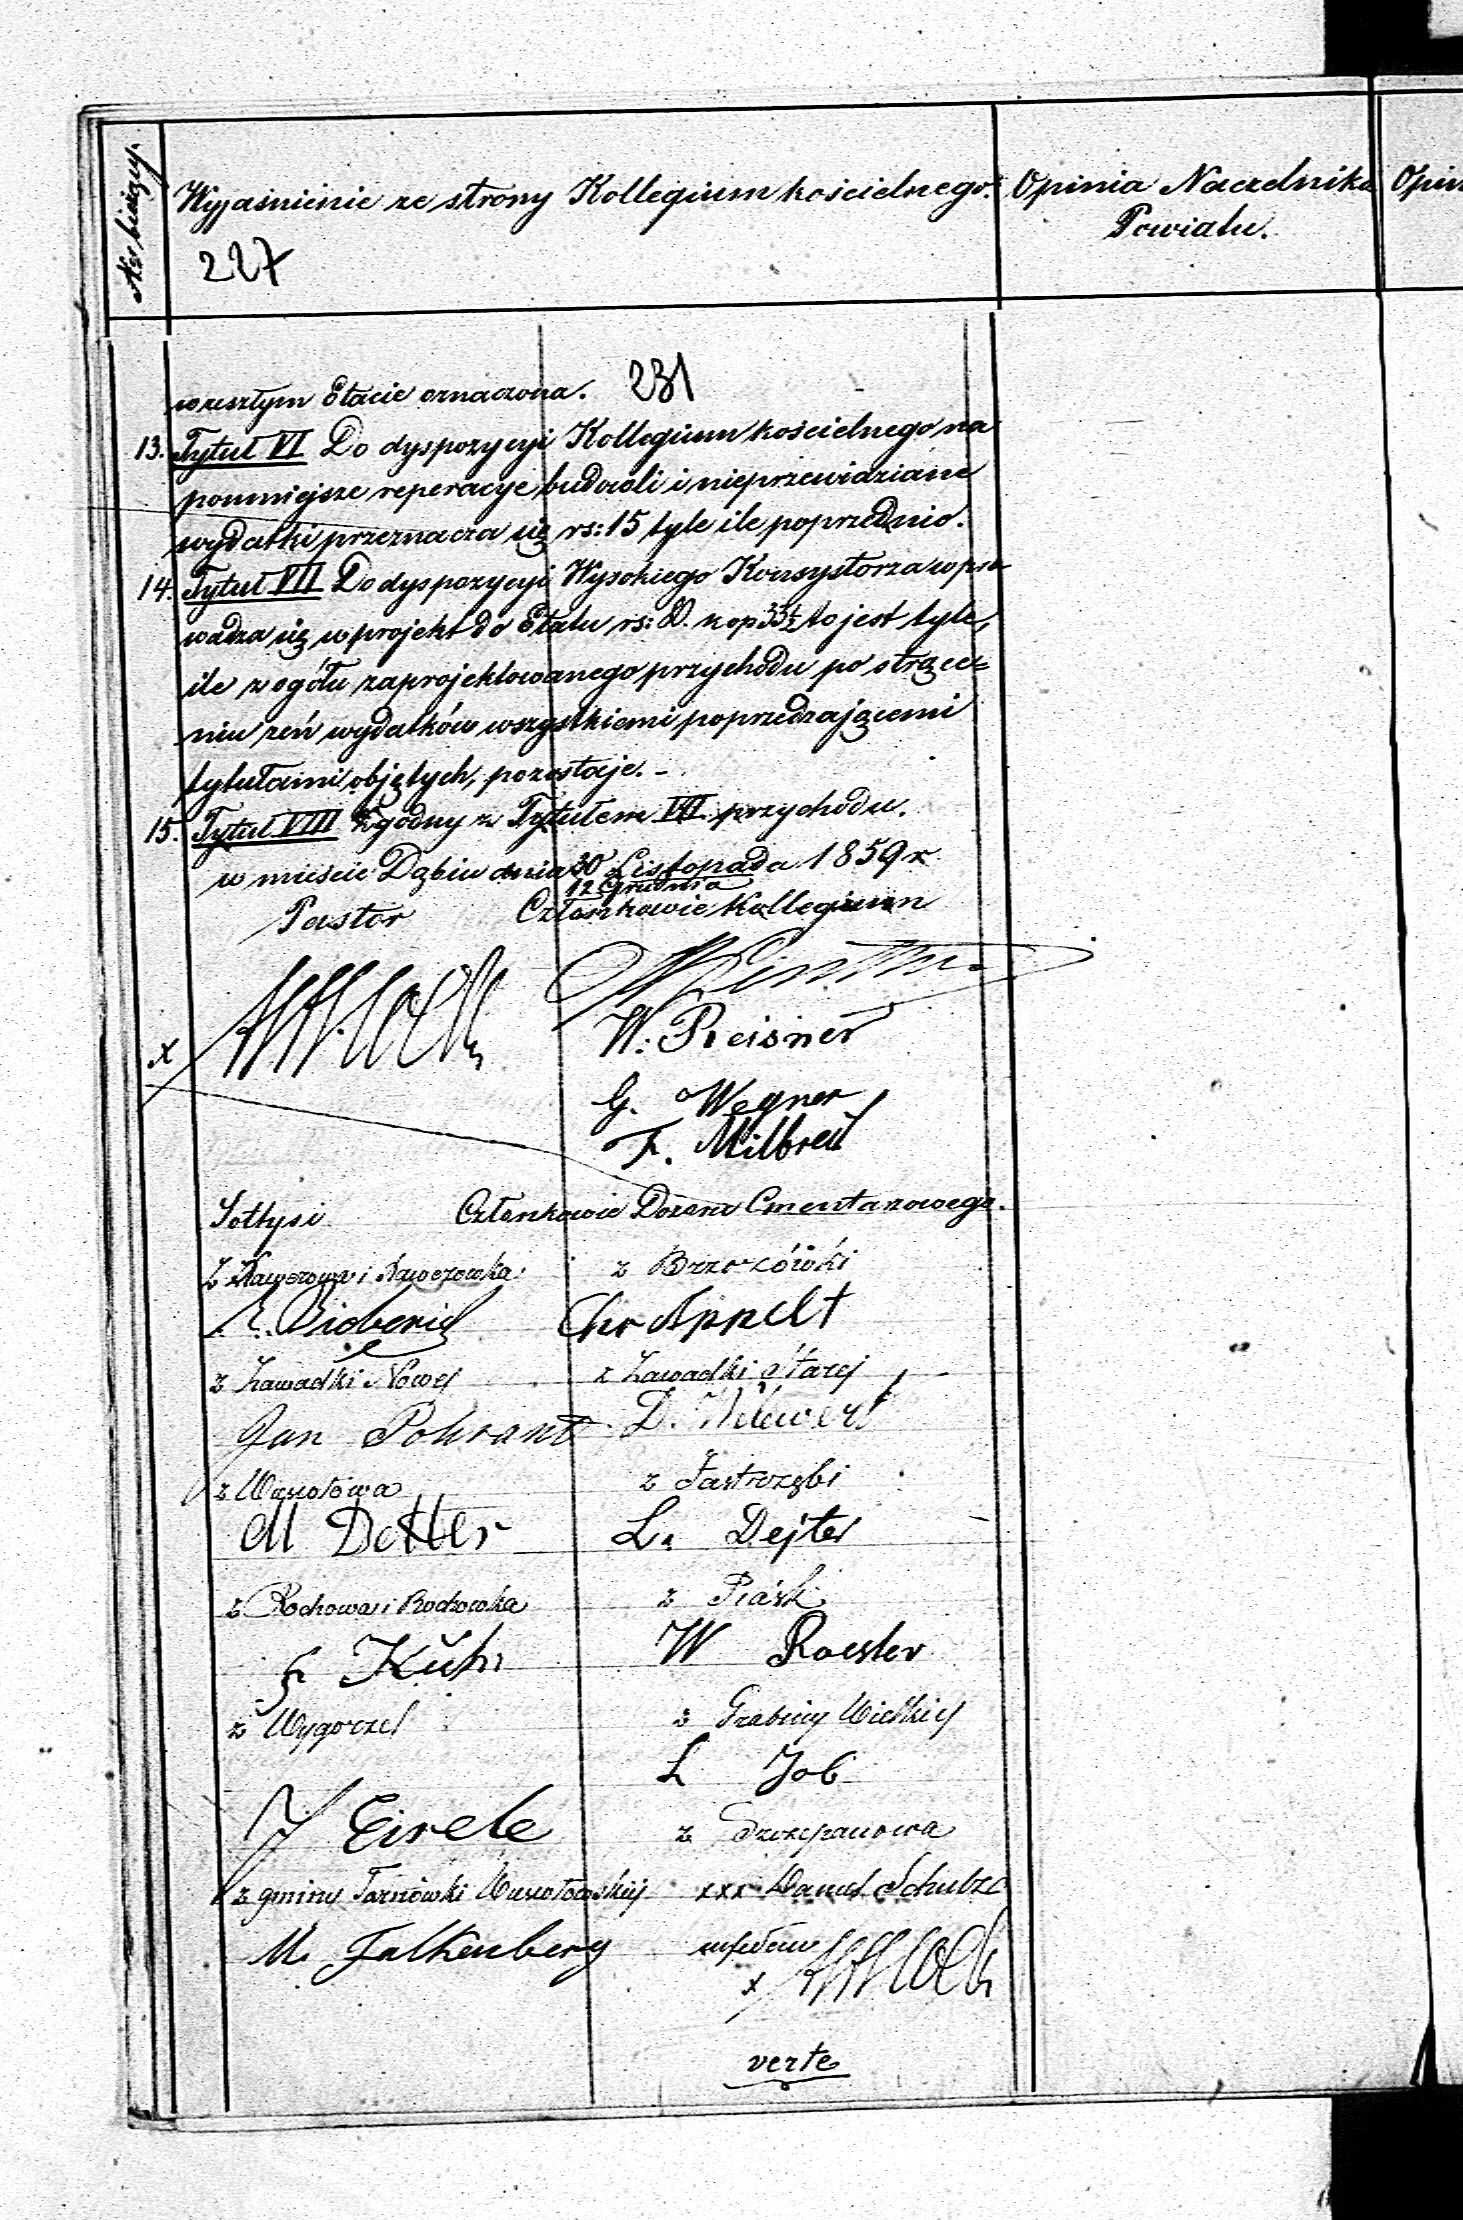 Ner bieżący.
Wyjaśnienie ze strony Kollegium kościelnego.
Opinia Naczelnika
Powiatu.
Opin
227
231
w zeszłym Etacie oznaczona.
13. Tytuł VI Do dyspozycyi Kollegium kościelnego na
pomniejsze reperacye budowli i nieprzewidziane
wydatki przeznacza się rs: 15 tyle ile poprzednio.
14. Tytuł VII Do dyspozycyi Wysokiego Konsystorza wpro
wadza się w projekt do Etatu rs: kop 33½ to jest tyle,
ile z ogółu zaprojektowanego przychodu po strące=
niu zeń wydatków wszystkiemi poprzedzającemi
tytułami objętych, pozostaje. -
15. Tytuł VIII Zgodny z Tytułem VII przychodu.
w mieście Dąbiu dnia 30 Listopada 1859 r
12 Grudnia
Pastor
Członkowie Kollegium
W. Preisner
G. Wegner
F. Milbret
x
Sołtysi
Członkowie Dozoru Cmentarzowego.
z Brzozówki
Chr Appelt
z Zawadki Nowej
z Zawadki Starej
Jan Pohrant
z Wąsołowa
z Jastrzębi
M Detter
L. Dejter
z Rochowa i Rochowka
z Piask
F Kuhn
W Roesler
z Wygorzel
z Grabiny Wielkiej
L Job
J Eirele
z Szczepanowa
z gminy Tarnówki
xxx Schulze
M. Falkenberg
x
verte